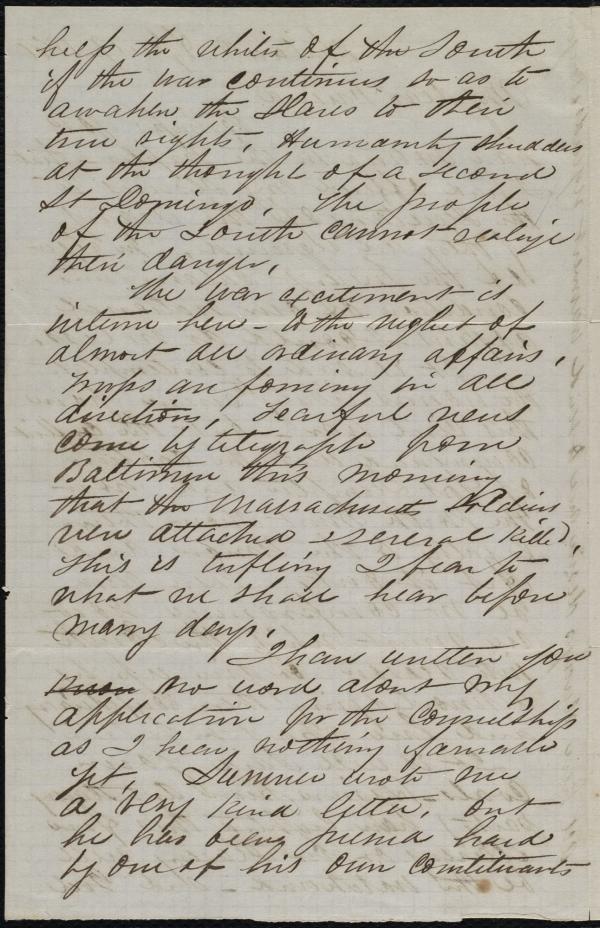 help the whites of the South
if the war continues so as to
awaken the slaves to their
true rights. Humanity shudders
at the thought of a second
St Domingo. The people
of the South cannot realize
their danger.
The war excitement is
intense here - to the neglect of
almost all ordinary affairs.
Troops are forming in all
directions. Fearful news
come by telegraph from
Baltimore this morning
that the Massachusetts soldiers
were attacked & several killed.
This is trifling I fear to
what we shall hear before
many days.
I have written you
no word about my
application for the Consulship
as I hear nothing favorable
yet. Sumner wrote me
a very kind letter, but
he has been pressed hard
by one of his own constituents